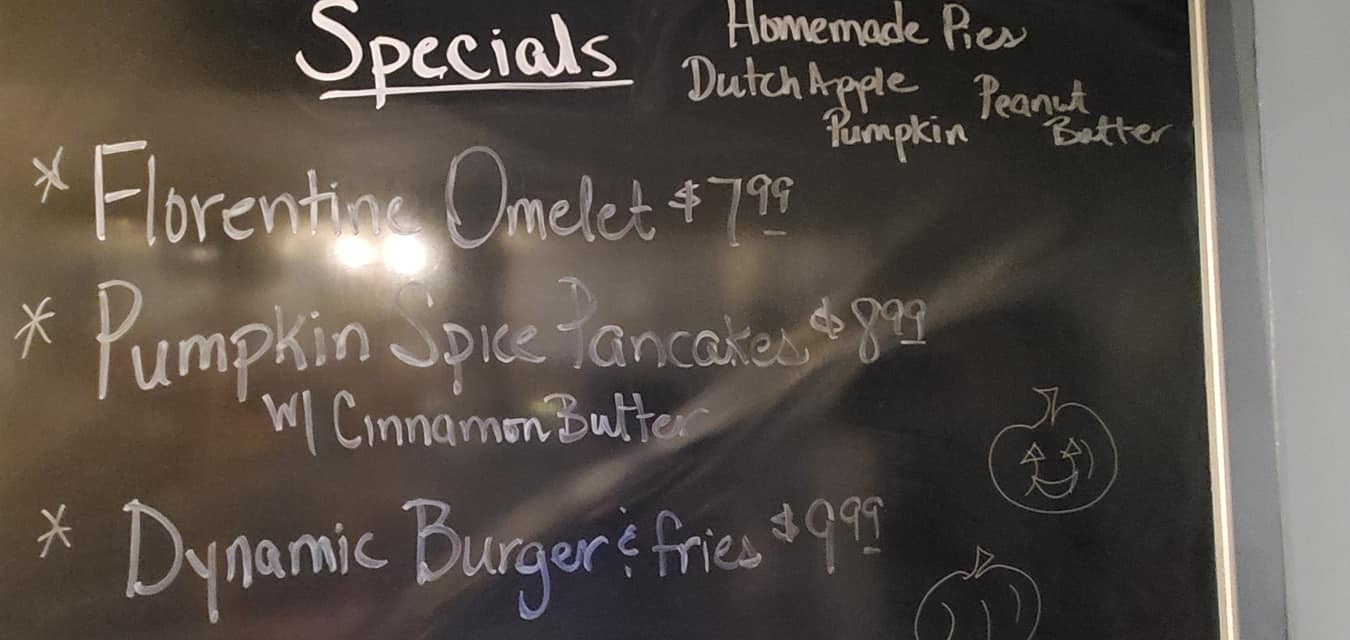 Specials
Homemade Pies
Dutch Apple
Pumpkin
Peanut
Butter
* Florentine Omelet $7.99
* Pumpkin Spice Pancakes $8.99
W/ Cinnamon Butter
* Dynamic Burger & fries $9.99